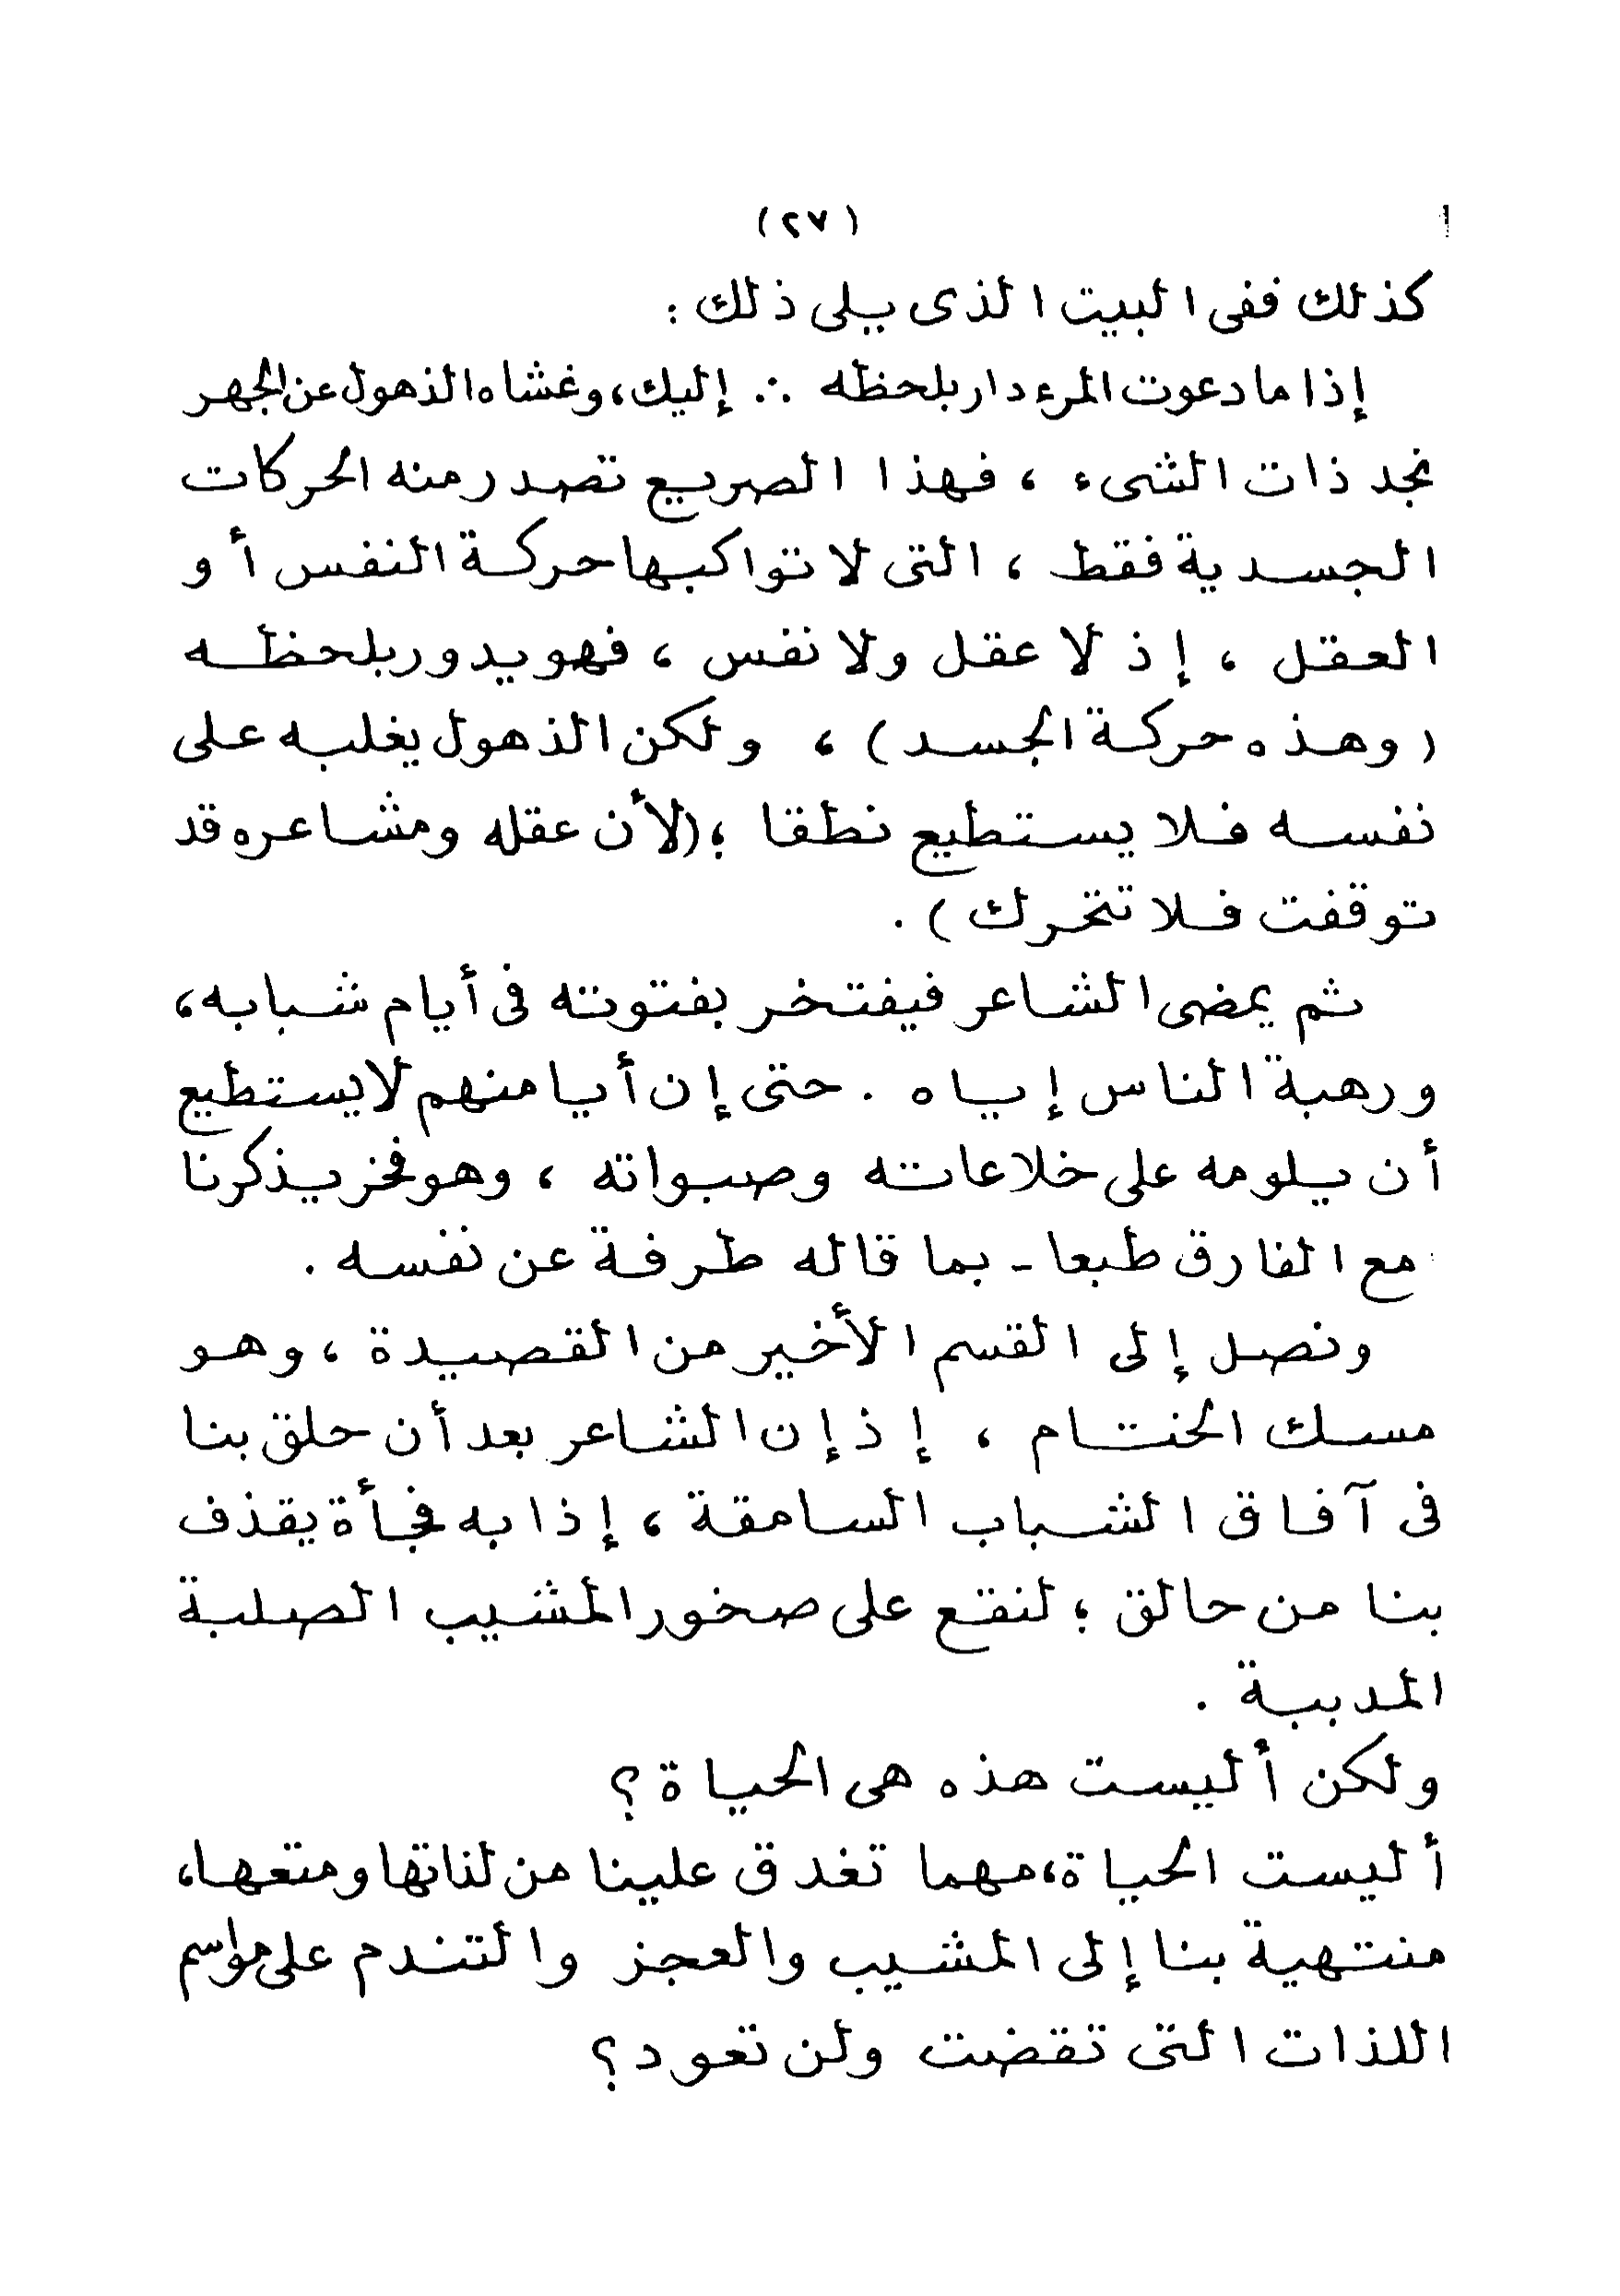 (٢٧)
كذلك ففى البيت الذى يلى ذلك :
إذا ما دعوت المرء دار بلحظه ∴ إليك، وغشاه الذهول عن الجهر
نجد ذات الشىء ، فهذا الصريع تصدر منه الحركات
الجسدية فقط ، التى لا تواكبها حركة النفس أو
العقل ، إذ لا عقل ولا نفس ، فهو يدور بلحظه
( وهذه حركة الجسد ) ، ولكن الذهول يغلبه على
نفسه فلا يستطيع نطقا ؛ (لأن عقله ومشاعره قد
توقفت فلا تتحرك ) .
ثم يمضى الشاعر فيفتخر بفتوته فى أيام شبابه،
ورهبة الناس إياه . حتى إن أيا منهم لا يستطيع
أن يلومه على خلاعاته وصبواته ، وهو فخر يذكرنا
مع الفارق طبعا - بما قاله طرفة عن نفسه .
ونصل إلى القسم الأخير من القصيدة ، وهو
مسك الختام ، إذ إن الشاعر بعد أن حلق بنا
فى آفاق الشباب السامقة ، إذا به فجأة يقذف
بنا من حالق ؛ لنقع على صخور المشيب الصلبة
المدببة .
ولكن أليست هذه هى الحياة ؟
أليست الحياة، مهما تغدق علينا من لذاتها ومتعها،
منتهية بنا إلى المشيب والعجز والتندم على مواسم
اللذات التى تقضت ولن تعود ؟